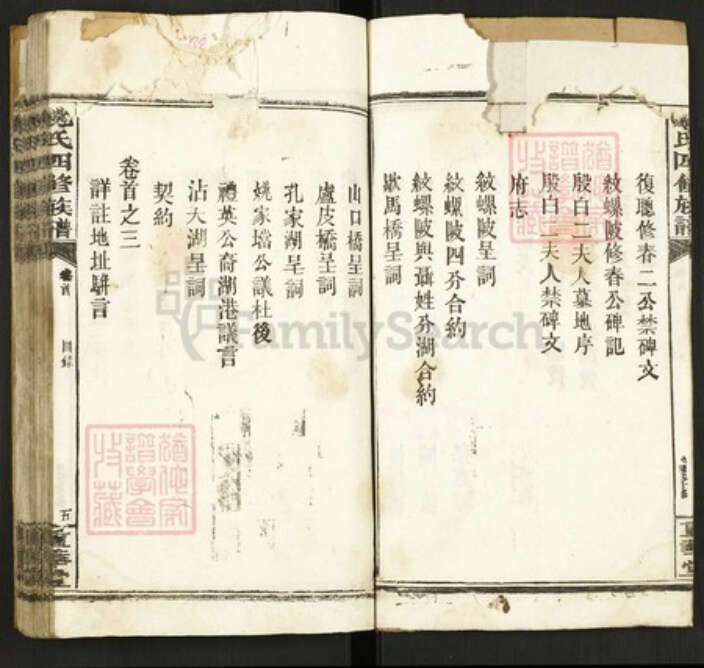 復聰修春二公禁碑文
紋螺陂修春公碑記
殷白二夫人墓地序
殷白二夫人禁碑文
府志
紋螺陂呈詞
紋螺陂四分合約
紋螺陂與聶姓分湖合約
歇馬橋呈詞
氏四修族譜
山口橋呈詞
盧皮橋呈詞
孔家湖呈詞
姚家壋公議杜後
禮英公裔湖港議言
沾大湖呈詞
契約
卷首之三
詳註地址駢言
姚氏四修族譜
卷首
目錄
五
重華堂
FamilySearch